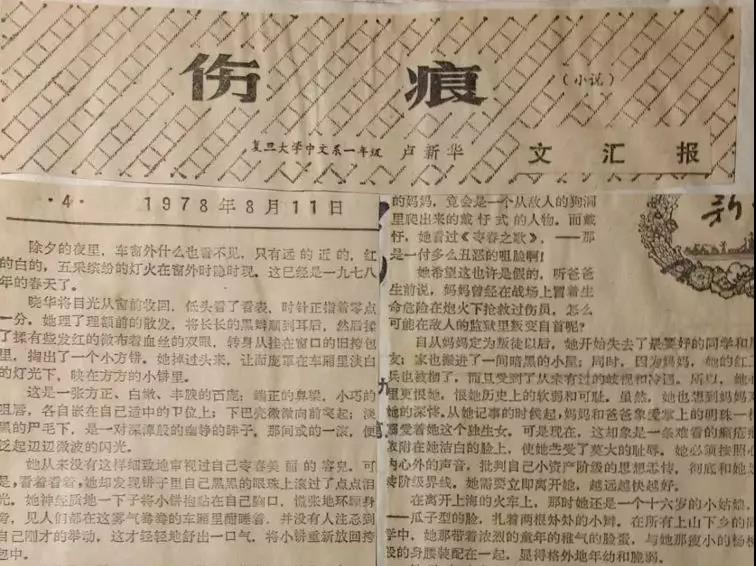 伤痕
（小说）
复旦大学中文系一年级 卢新华 文汇报
·4· 1978年8月11日
除夕的夜里，车窗外什么也看不见，只有远的近的，红
的白的，五采缤纷的灯火在窗外时隐时现。这已经是一九七八
年的春天了。
晓华将目光从窗前收回，低头看了看表，时针正指着零点
一分。她理了理额前的散发，将长长的黑辫顺到耳后，然后揉
了揉有些发红的微布着血丝的双眼，转身从挂在窗口的旧挎包
里，掏出了一个小方镜。她掉过头来，让面庞罩在车厢里淡白
的灯光下，映在方方的小镜里。
这是一张方正、白嫩、丰腴的面庞：端正的鼻梁，小巧的
咀唇，各自嵌在自己适中的卫位上；下巴壳微微向前突起；淡
黑的尸毛下，是一对深潭般的幽静的眸子，那间或的一滚，便
泛起辺辺微波的闪光。
她从来没有这样细致地审视过自己青春美丽的容皃。可
是，看着看着，她却发现镜子里自己黑黑的眼珠上滚过了点点泪
光。她神经质地一下子将小镜抱贴在自己胸口，慌张地环顾身
旁，见人们都在这雾气
自己刚才的举动，这才轻轻地舒出一口气，将小镜重新放回挎
包中。
的妈妈，竟会是一个从敌人的狗洞
里爬出来的戴忏式的人物。而戴
忏，她看过《青春之歌》，——那
是一付多么丑恶的咀脸啊！
她希望这也许是假的，听爸爸
生前说，妈妈曾经在战场上冒着生
命危险在炮火下抢救过伤员，怎么
可能在敌人的监狱里叛变自首呢？
自从妈妈定为叛徒以后，她开始失去了最要好的同学和朋
友；家也搬进了一间暗黑的小屋；同时，因为妈妈，她的红卫
兵也被撤了，而且受到了从未有过的歧视和冷遇。所以，她
里更恨她，恨她历史上的软弱和可耻。虽然，她也想到妈妈对
她的深情。从她记事的时候起，妈妈和爸爸象爱掌上的明珠一样
溺爱着她这个独生女。可是现在，这却象是一条难看的癞疮疤
依附在她洁白的脸上，使她蒙受了莫大的耻辱。她必须按照心
内心外的声音，批判自己小资产阶级的思想感情，彻底和她划
清阶级界线。她需要立即离开她，越远越快越好。
在离开上海的火车上，那时她还是一个十六岁的小姑娘，
——瓜子型的脸，扎着两根
学中，她那带着浓烈的童年的稚气的脸蛋，与她那瘦小的杨柳
般的身腰装配在一起，显得格外地年幼和脆弱。